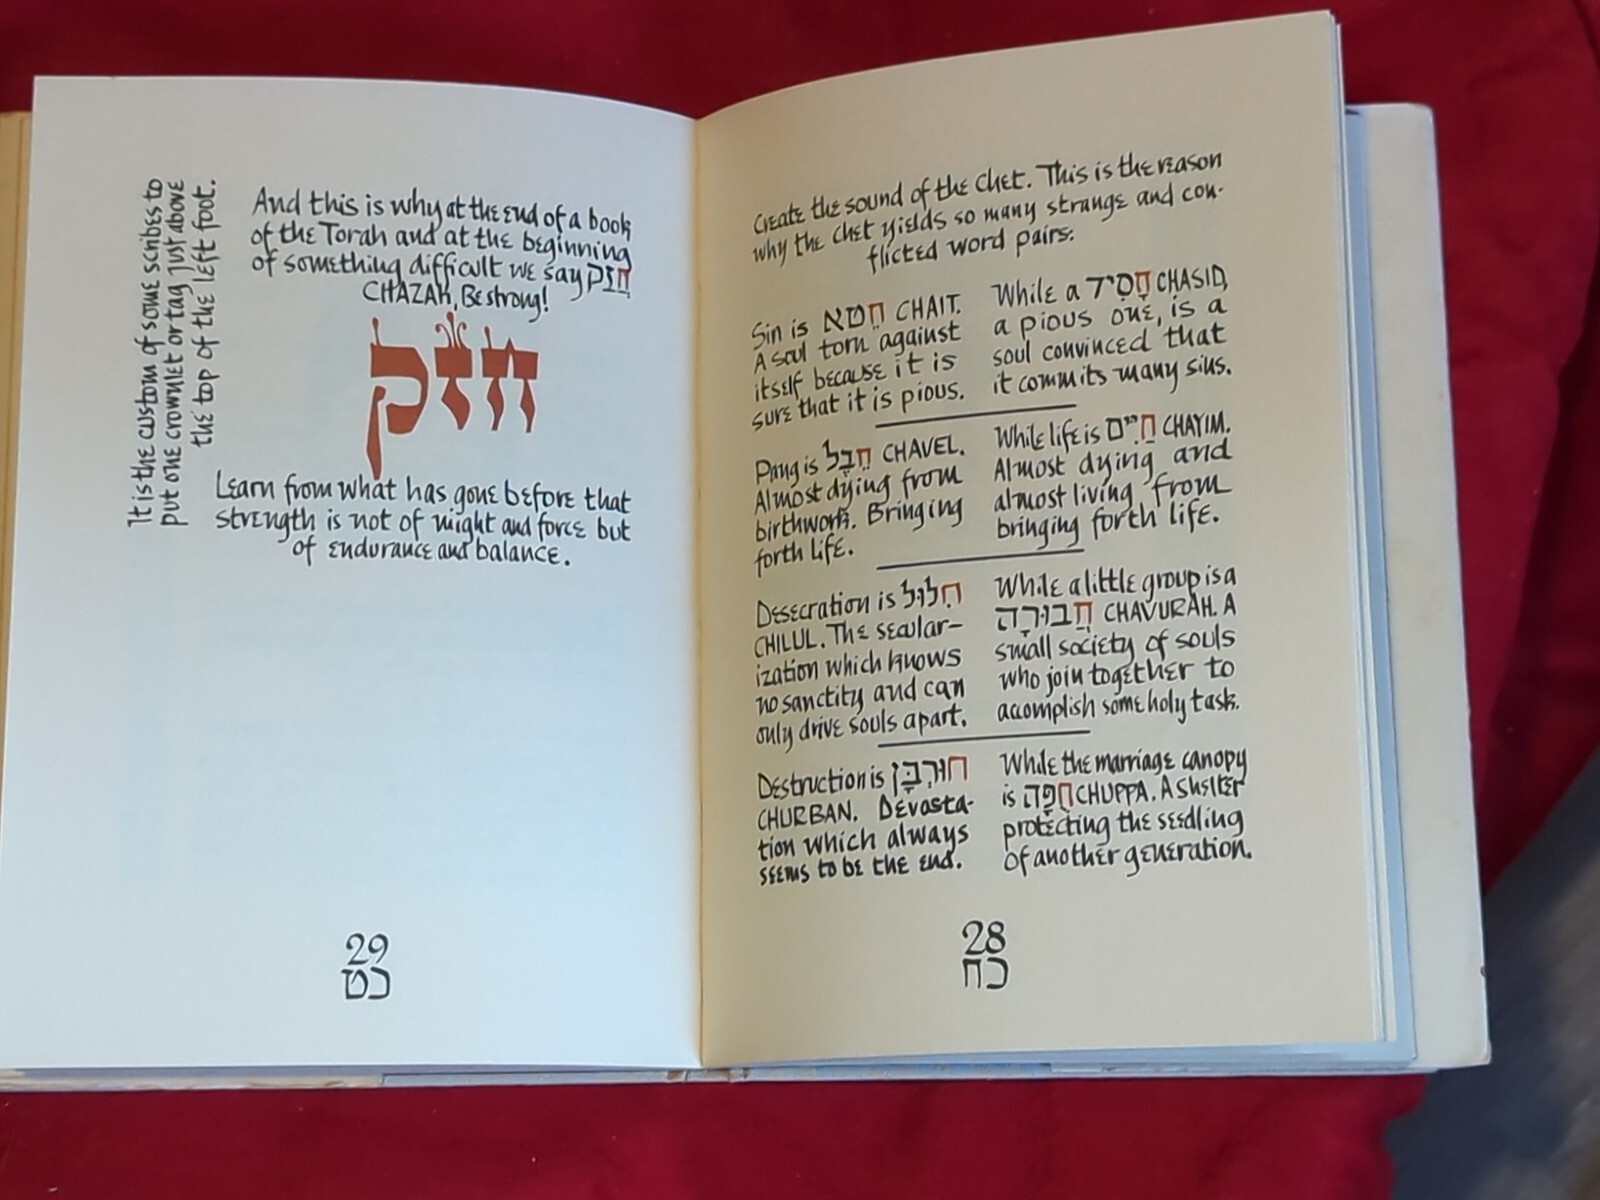 Create the sound of the Chet. This is the reason
why the chet yields so many strange and con-
flicted word pairs:
Sin is חֵטא CHAIT.
A soul torn against
itself because it is
sure that it is pious.
While a חָסִיד CHASID,
a pious one, is a
soul convinced that
it commits many sins.
Pang is חֵבֶל CHAVEL.
Almost dying from
birthwork. Bringing
forth life.
While life is חַיִּים CHAYIM.
Almost dying and
almost living, from
bringing forth life.
Desecration is חִלוּל
CHILUL. The secular-
ization which knows
no sanctity and can
only drive souls apart.
While a little group is a
חֲבוּרָה CHAVURAH. A
small society of souls
who join together to
accomplish some holy task.
Destruction is חוּרְבָּן
CHURBAN. Devasta-
tion which always
seems to be the end.
While the marriage canopy
is חֻפָּה CHUPPA. A shelter
protecting the seedling
of another generation.
28
כח
And this is why at the end of a book
of the Torah and at the beginning
of something difficult we say חֲזַק
CHAZAK, Be strong!
חזק
Learn from what has gone before that
strength is not of might and force but
of endurance and balance.
It is the custom of some scribes to
put one crownlet or tag just above
the top of the left foot.
29
כט